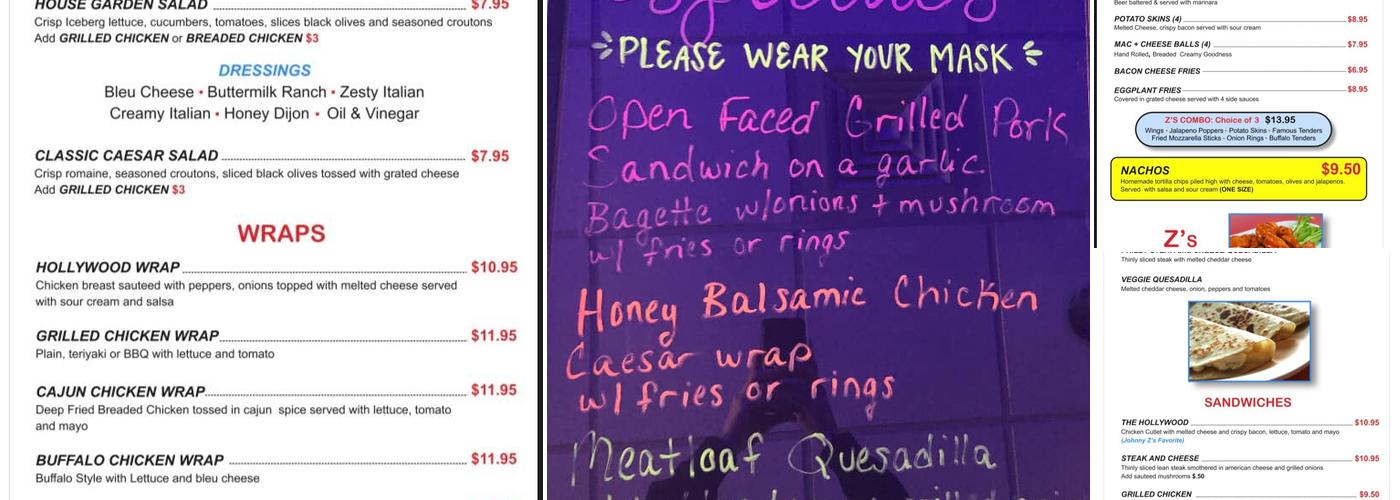 HOUSE GARDEN SALAD $7.95
Crisp Iceberg lettuce, cucumbers, tomatoes, slices black olives and seasoned croutons
Add GRILLED CHICKEN or BREADED CHICKEN $3
DRESSINGS
Bleu Cheese • Buttermilk Ranch • Zesty Italian
Creamy Italian • Honey Dijon • Oil & Vinegar
CLASSIC CAESAR SALAD $7.95
Crisp romaine, seasoned croutons, sliced black olives tossed with grated cheese
Add GRILLED CHICKEN $3
WRAPS
HOLLYWOOD WRAP $10.95
Chicken breast sauteed with peppers, onions topped with melted cheese served
with sour cream and salsa
GRILLED CHICKEN WRAP $11.95
Plain, teriyaki or BBQ with lettuce and tomato
CAJUN CHICKEN WRAP $11.95
Deep Fried Breaded Chicken tossed in cajun spice served with lettuce, tomato
and mayo
BUFFALO CHICKEN WRAP $11.95
Buffalo Style with Lettuce and bleu cheese
PLEASE WEAR YOUR MASK
Open Faced Grilled Pork
Sandwich on a garlic
Bagette w/onions + mushroom
w/ fries or rings
Honey Balsamic Chicken
Caesar wrap
w/ fries or rings
Meatloaf Quesadilla
Beer battered & served with marinara
POTATO SKINS (4) $8.95
Melted Cheese, crispy bacon served with sour cream
MAC + CHEESE BALLS (4) $7.95
Hand Rolled, Breaded Creamy Goodness
BACON CHEESE FRIES $6.95
EGGPLANT FRIES $8.95
Covered in grated cheese served with 4 side sauces
Z'S COMBO: Choice of 3 $13.95
Wings · Jalapeno Poppers · Potato Skins · Famous Tenders
Fried Mozzarella Sticks · Onion Rings · Buffalo Tenders
NACHOS $9.50
Homemade tortilla chips piled high with cheese, tomatoes, olives and jalapenos.
Served with salsa and sour cream (ONE SIZE)
Z'S
Thinly sliced steak with melted cheddar cheese
VEGGIE QUESADILLA
Melted cheddar cheese, onion, peppers and tomatoes
SANDWICHES
THE HOLLYWOOD $10.95
Chicken Cutlet with melted cheese and crispy bacon, lettuce, tomato and mayo
(Johnny Z's Favorite)
STEAK AND CHEESE $10.95
Thinly sliced lean steak smothered in american cheese and grilled onions
Add sauteed mushrooms $.50
GRILLED CHICKEN $9.50